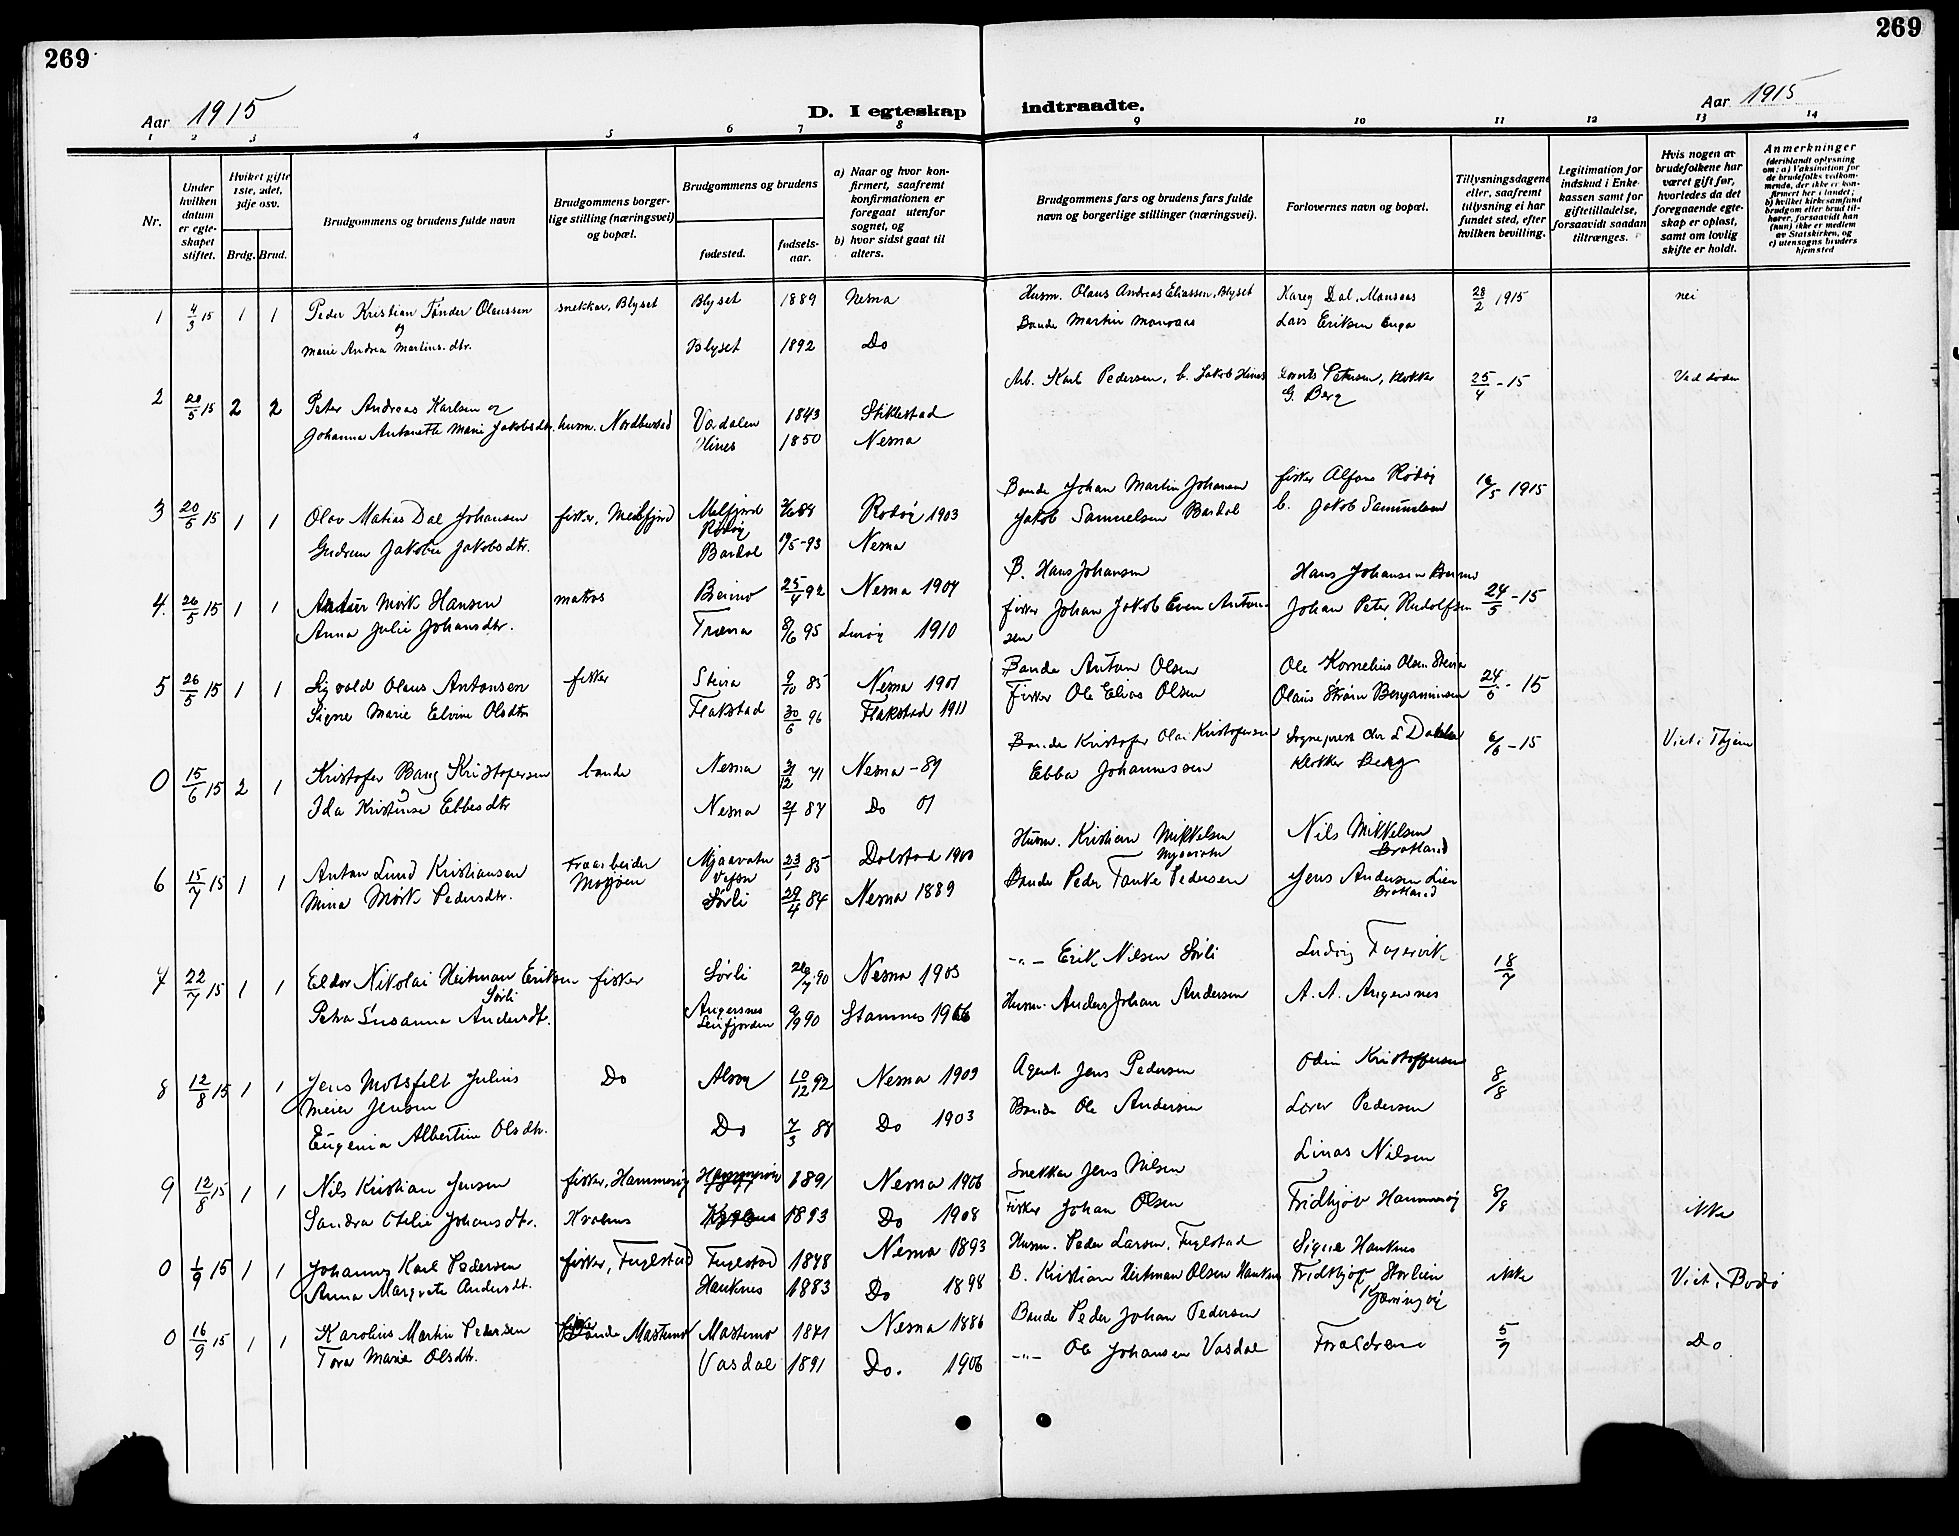 269
269
Aar 1915
D. I egteskap indtraadte.
Aar 1915
1 2 3 4 5 6 7 8 9 10 11 12 13 14
Nr.
Under hvilken datum er egteskapet stiftet.
Hviket gifte 1ste, 2det, 3dje osv.
Brdg. Brud.
Brudgommens og brudens fulde navn
Brudgommens borgerlige stilling (næringsvei) og bopæl.
Brudgommens og brudens
fødested.
fødselsaar.
a) Naar og hvor konfirmert, saafremt konfirmationen er foregaat utenfor sognet, og
b) hvor sidst gaat til alters.
Brudgommens fars og brudens fars fulde navn og borgerlige stillinger (næringsvei).
Forlovernes navn og bopæl.
Tillysningsdagene eller, saafremt tillysning ei har fundet sted, efter hvilken bevilling.
Legitimation for indskud i Enkekassen samt for giftetilladelse, forsaavidt saadan tiltrænges.
Hvis nogen av brudefolkene har været gift før, hvorledes da det foregaaende egteskap er opløst, samt om lovlig skifte er holdt.
Anmerkninger
(deriblandt oplysning om: a) Vaksination for de brudefolks vedkommende, der ikke er konfirmert her i landet; b) hvilket kirkesamfund brudgom eller brud tilhører, forsaavidt han (hun) ikke er medlem av Statskirken, og c) utensogns bruders hjemsted
1 4/3 15 1 1 Peder Kristian Tønder Olaussen snekker, Blyset Blyset 1889 Nesna Husm. Olaus Andreas Eliassen, Blyset Kareg Dal, Mausaas 28/2 1915 nei
og
Marie Andrea Martins.dtr. Blyset 1892 Do Bonde Martin Lars Eriksen Enga
2 20/5 15 2 2 Peter Andreas Karlsen og Vadalen 1843 Stiklestad Arb. Karl Pedersen, b. Jakob Hines Petersen, klokker 25/4 - 15 Ved døden
Johanna Antonette Marie Jakobsdtr. husm. Hines 1850 Nesna G. Berg
3 20/5 15 1 1 Olav Matias Dal Johansen fisker, Melfjord Melfjord Rødøy Rødøy 1903 Bonde Johan Martin Johansen fisker Alfons Rødøy 16/5 1915
Gudrun Jakobine Jakobsdtr. Bardal 19/5-93 Nesna Jakob Samuelsen Bardal b. Jakob Samuelsen
4. 26/5 15 1 1 Mørk Hansen matros 25/4 92 Nesna 1907 B. Hans Johansen Hans Johansen 24/5 - 15
Anna Julie Johansdtr. Træna 8/6 95 Lurøy 1910 fisker Johan Jakob Even Antonsen Johan Peter Rudolfsen
5 26/5 15 1 1 Sigvald Olaus Antonsen fisker Steira 9/10 85 Nesna 1901 Bonde Anton Olsen Ole Kornelius Olsen Steira 24/5 - 15
Signe Marie Elvine Olsdtr Flakstad 30/6 96 Flakstad 1911 Fisker Ole Elias Olsen Olaus Strøm Benjaminsen
0 15/6 15 2 1 Kristofer Bang Kristofersen bonde Nesna 31/12 71 Nesna - 87 Bonde Kristofer Olai Kristofersen Sogneprest 6/6 - 15 Viet i Thjem
Ida Kristense Ebbesdtr Nesna 84 Do 01 Ebba Johannessen klokker Berg
6 15/7 15 1 1 Anton Lund Kristiansen Træarbeider Mosjøen Mjaavatn Vefsn 23/1 85 Dolstad 1900 Husm. Kristian Mikkelsen Nils Mikkelsen
Mina Mørk Pedersdtr. Sørli 29/4 84 Nesna 1889 Bonde Peder Tanke Pedersen Jens Andersen Lien
7 22/7 15 1 1 Eldor Nikolai Heitman Eriksen Sørli fisker Sørli 90 Nesna 1903 -"- Erik Nilsen Sørli Ludvig Fagervik 18/7
Petra Susanna Andersdt. Angersnes Leirfjorden 9/9 90 Stamnes 1906 Husm. Anders Johan Andersen A. A. Angersnes
8 12/8 15 1 1 Jens Motsfelt Julius Do Alsøy 10/12 92 Nesna 1909 Agent Jens Pedersen Odin Kristoffersen 8/8
Meier Jensen
Eugenia Albertine Olsdtr. Do 7/3 88 Do 1903 Bonde Ole Andersen Pedersen
9 12/8 15 1 1 Nils Kristian Jensen fisker, Hammerøy 1891 Nesna 1906 Snekker Jens Nilsen Linas Nilsen 8/8 ikke
Sandra Otelie Johansdtr. 1893 Do 1908 Fisker Johan Olsen Fridthjov Hammerøy
0 1/9 15 1 1 Johannes Karl Pedersen fisker, Fuglstad Fuglstad 1878 Nesna 1893 Husm. Peder Larsen, Fuglstad Signe Hanknes ikke Viet i Bodø
Anna Margrete Andersdt. Hanknes 1883 Do 1898 B. Kristian Heitman Olsen Hanknes Fridthjof Storlien
0 16/9 15 1 1 Karolius Martin Pedersen Bonde Mastemo Mastemo 1871 Nesna 1886 Bonde Peder Johan Pedersen Forældrene 5/9 Do
Tora Marie Olsdtr. Vasdal 1891 Do. 1906 -"- Ole Johansen Vasdal